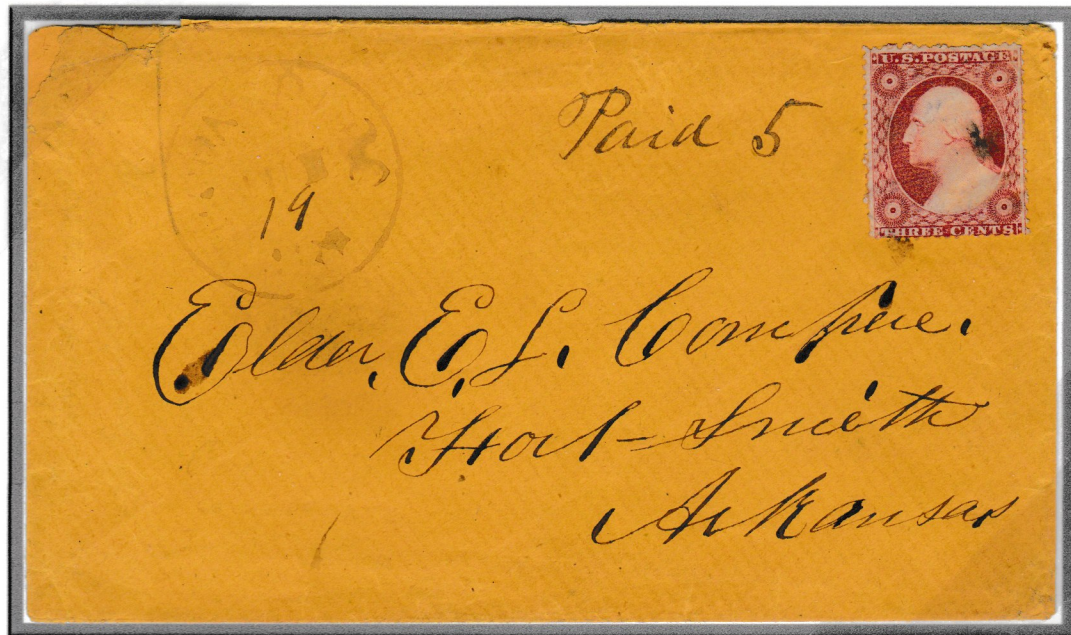 U.S. POSTAGE
Paid 5
THREE CENTS
19
Elder, E. L. Compere.
Fort-Smith
Arkansas